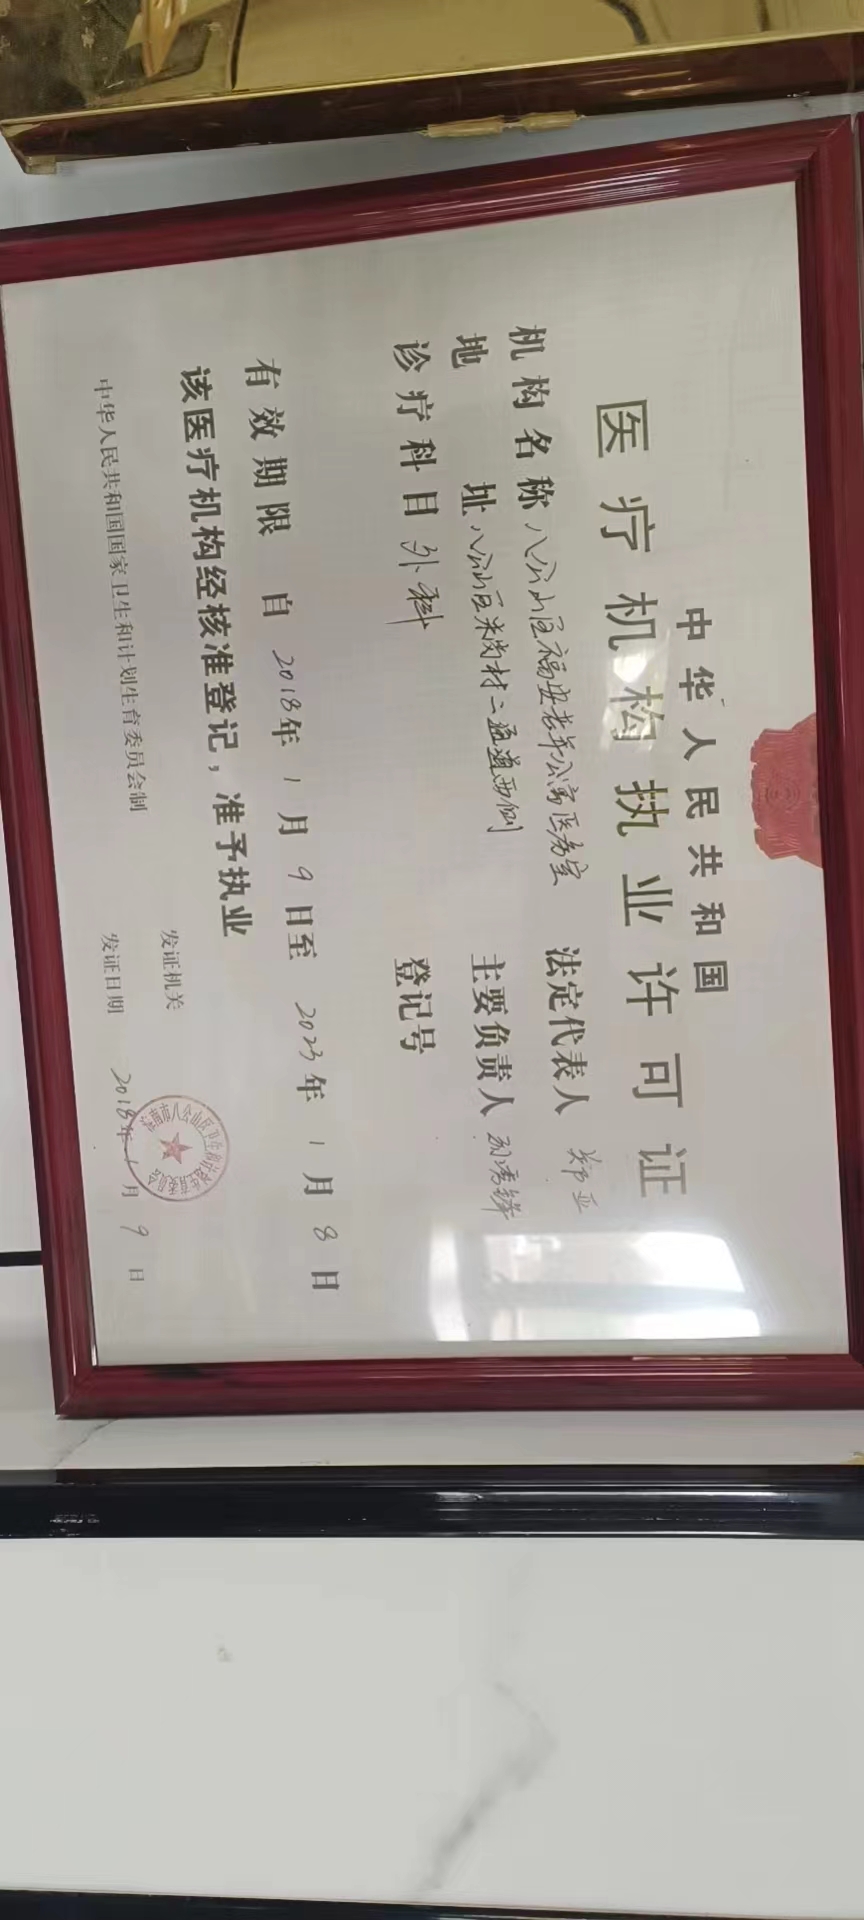 中华人民共和国
医疗机构执业许可证
机构名称 八公山区福安老年公寓医务室 法定代表人 郑亚
地址 八公山区米岗村二通道西侧 主要负责人
诊疗科目 外科 登记号
有效期限 自 2018年1月9日至 2023年1月8日
该医疗机构经核准登记，准予执业
发证机关
中华人民共和国国家卫生和计划生育委员会制 发证日期 2018年1月9日